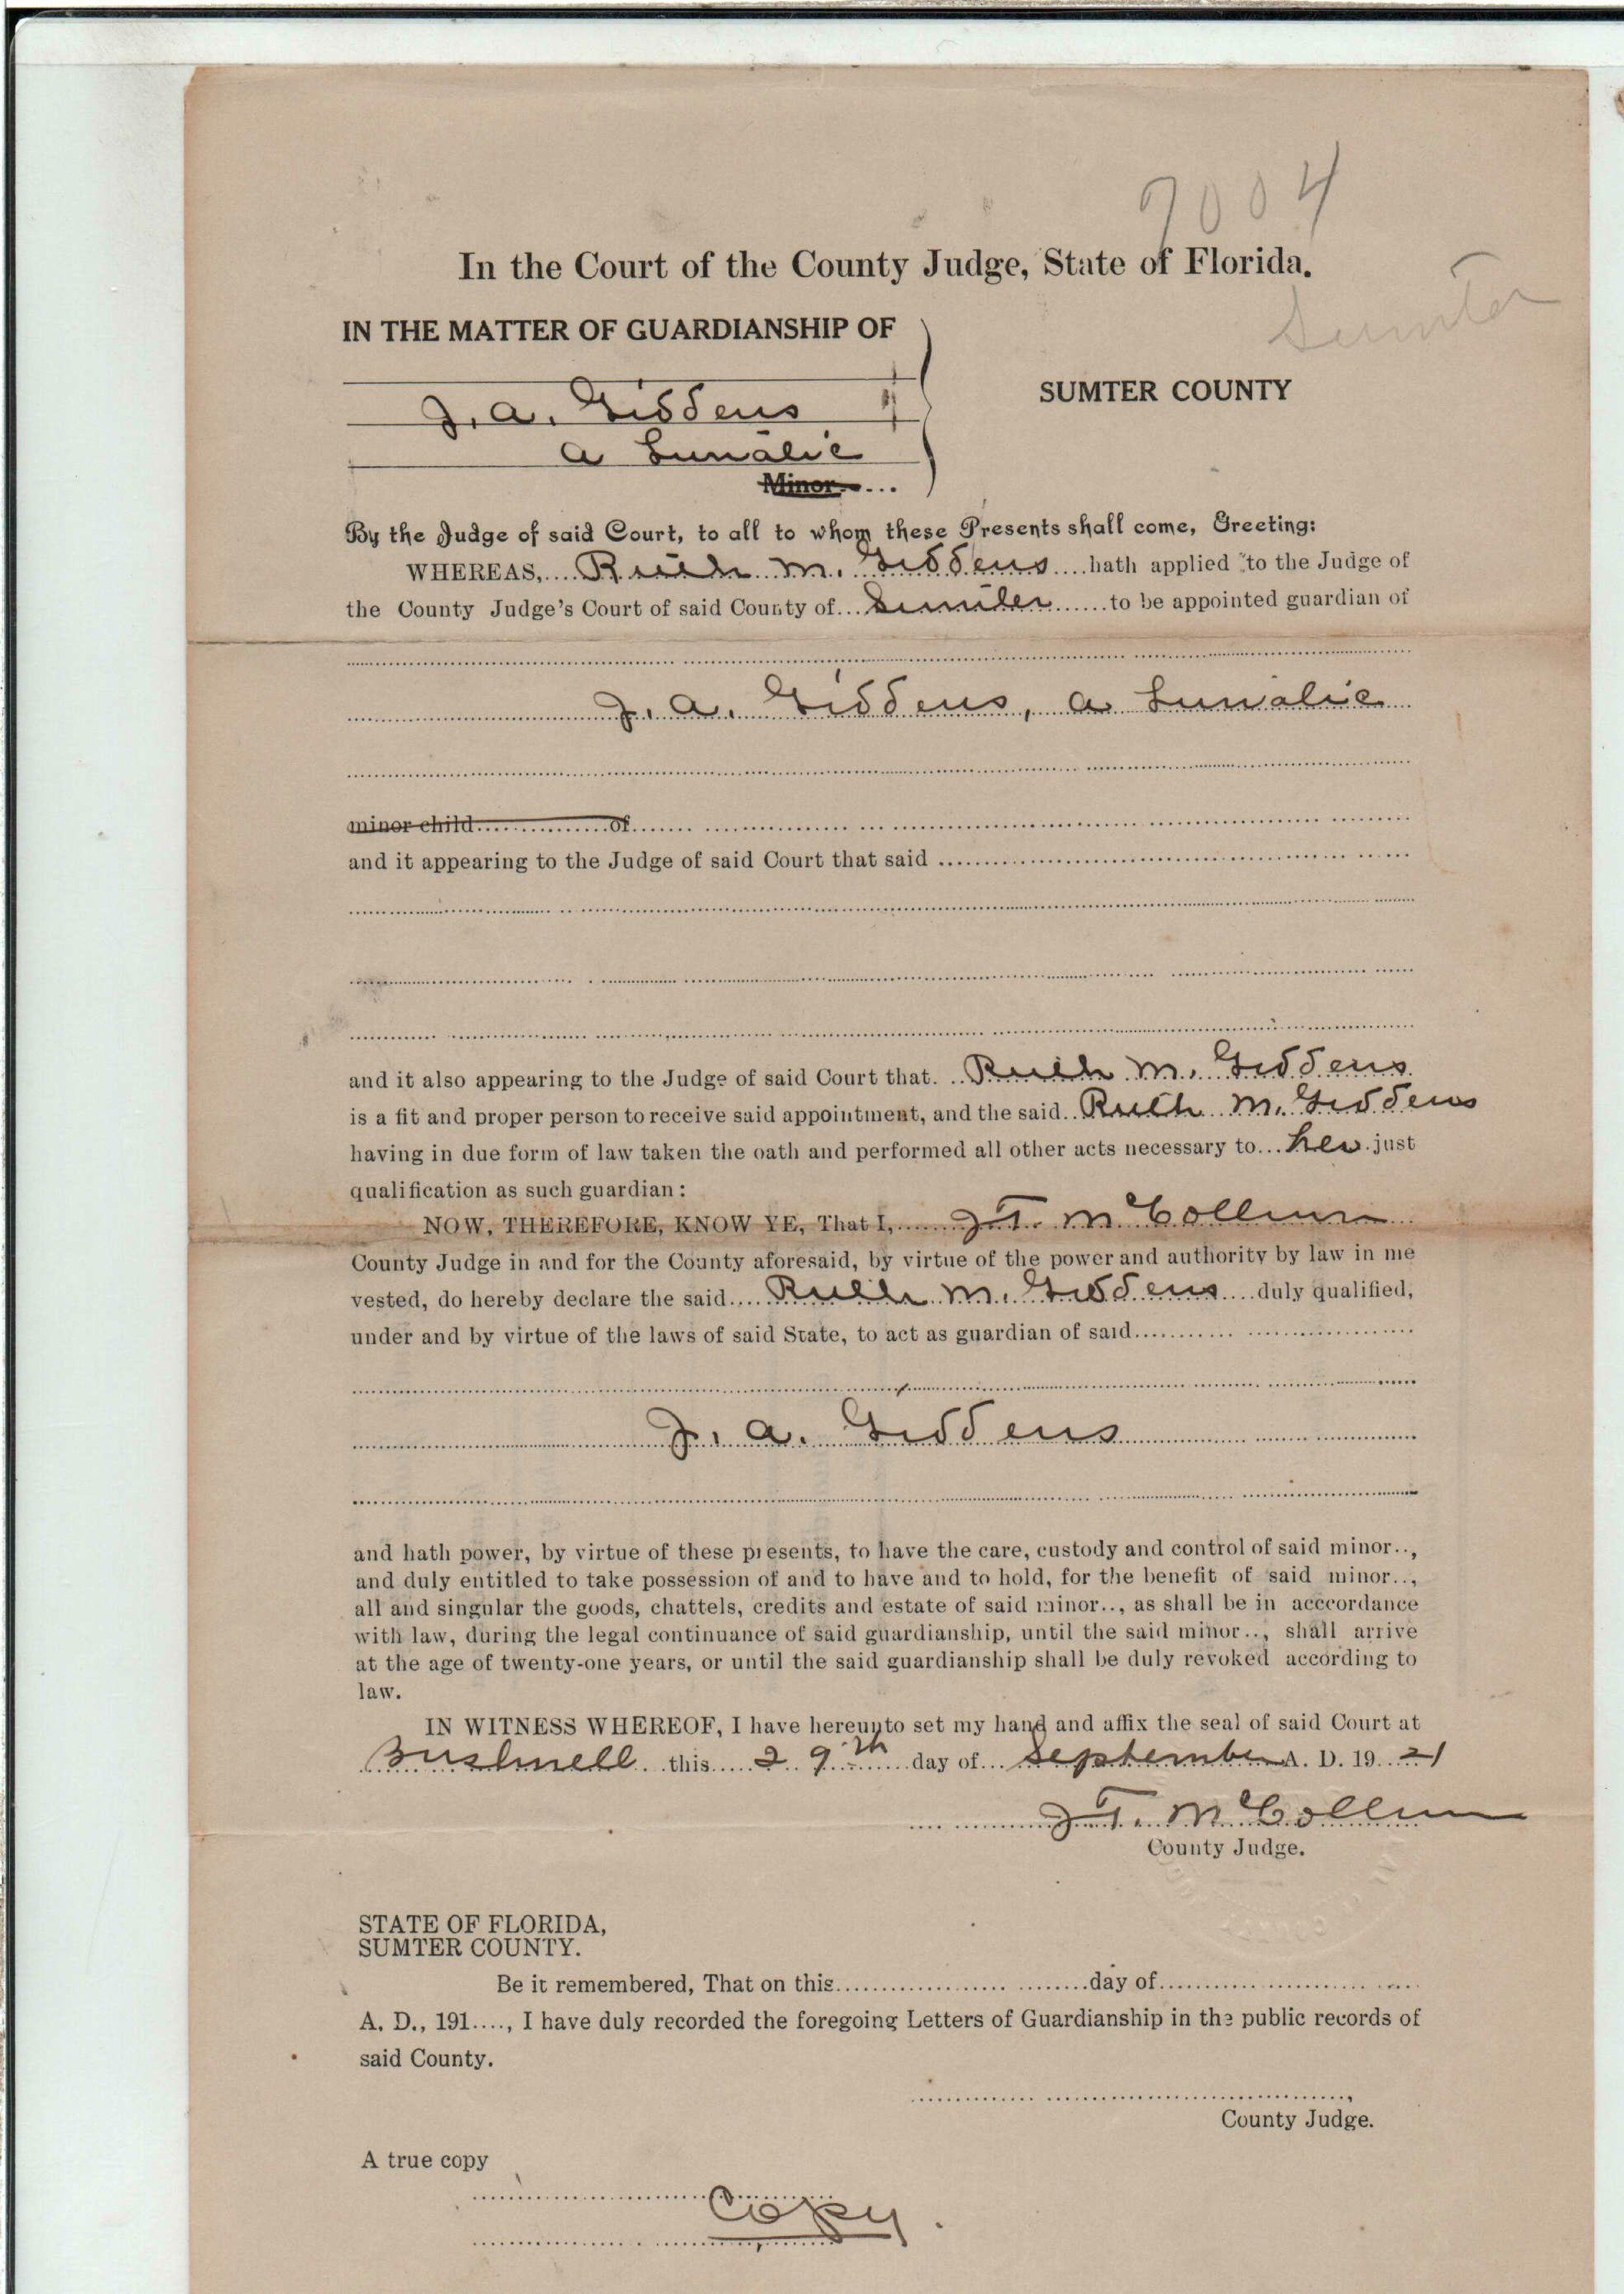 7004
In the Court of the County Judge, State of Florida.
Sumter
IN THE MATTER OF GUARDIANSHIP OF
SUMTER COUNTY
J. A. Giddens
a Lunatic
Minor....
By the Judge of said Court, to all to whom these Presents shall come, Greeting:
WHEREAS,....Ruth M. Giddens....hath applied to the Judge of
the County Judge's Court of said County of...Sumter......to be appointed guardian of
J. A. Giddens, a Lunatic
minor child...............of
and it appearing to the Judge of said Court that said
and it also appearing to the Judge of said Court that...Ruth M. Giddens
is a fit and proper person to receive said appointment, and the said..Ruth M. Giddens
having in due form of law taken the oath and performed all other acts necessary to...her.just
qualification as such guardian:
NOW, THEREFORE, KNOW YE, That I,......J.T. McCollum
County Judge in and for the County aforesaid, by virtue of the power and authority by law in me
vested, do hereby declare the said....Ruth M. Giddens....duly qualified,
under and by virtue of the laws of said State, to act as guardian of said
J. A. Giddens
and hath power, by virtue of these presents, to have the care, custody and control of said minor..,
and duly entitled to take possession of and to have and to hold, for the benefit of said minor..,
all and singular the goods, chattels, credits and estate of said minor.., as shall be in acccordance
with law, during the legal continuance of said guardianship, until the said minor.., shall arrive
at the age of twenty-one years, or until the said guardianship shall be duly revoked according to
law.
IN WITNESS WHEREOF, I have hereunto set my hand and affix the seal of said Court at
Bushnell...this.....29th......day of...September A. D. 19...21
J.T. McCollum
County Judge.
STATE OF FLORIDA,
SUMTER COUNTY.
Be it remembered, That on this.............................day of
A. D., 191...., I have duly recorded the foregoing Letters of Guardianship in the public records of
said County.
County Judge.
A true copy
Copy.